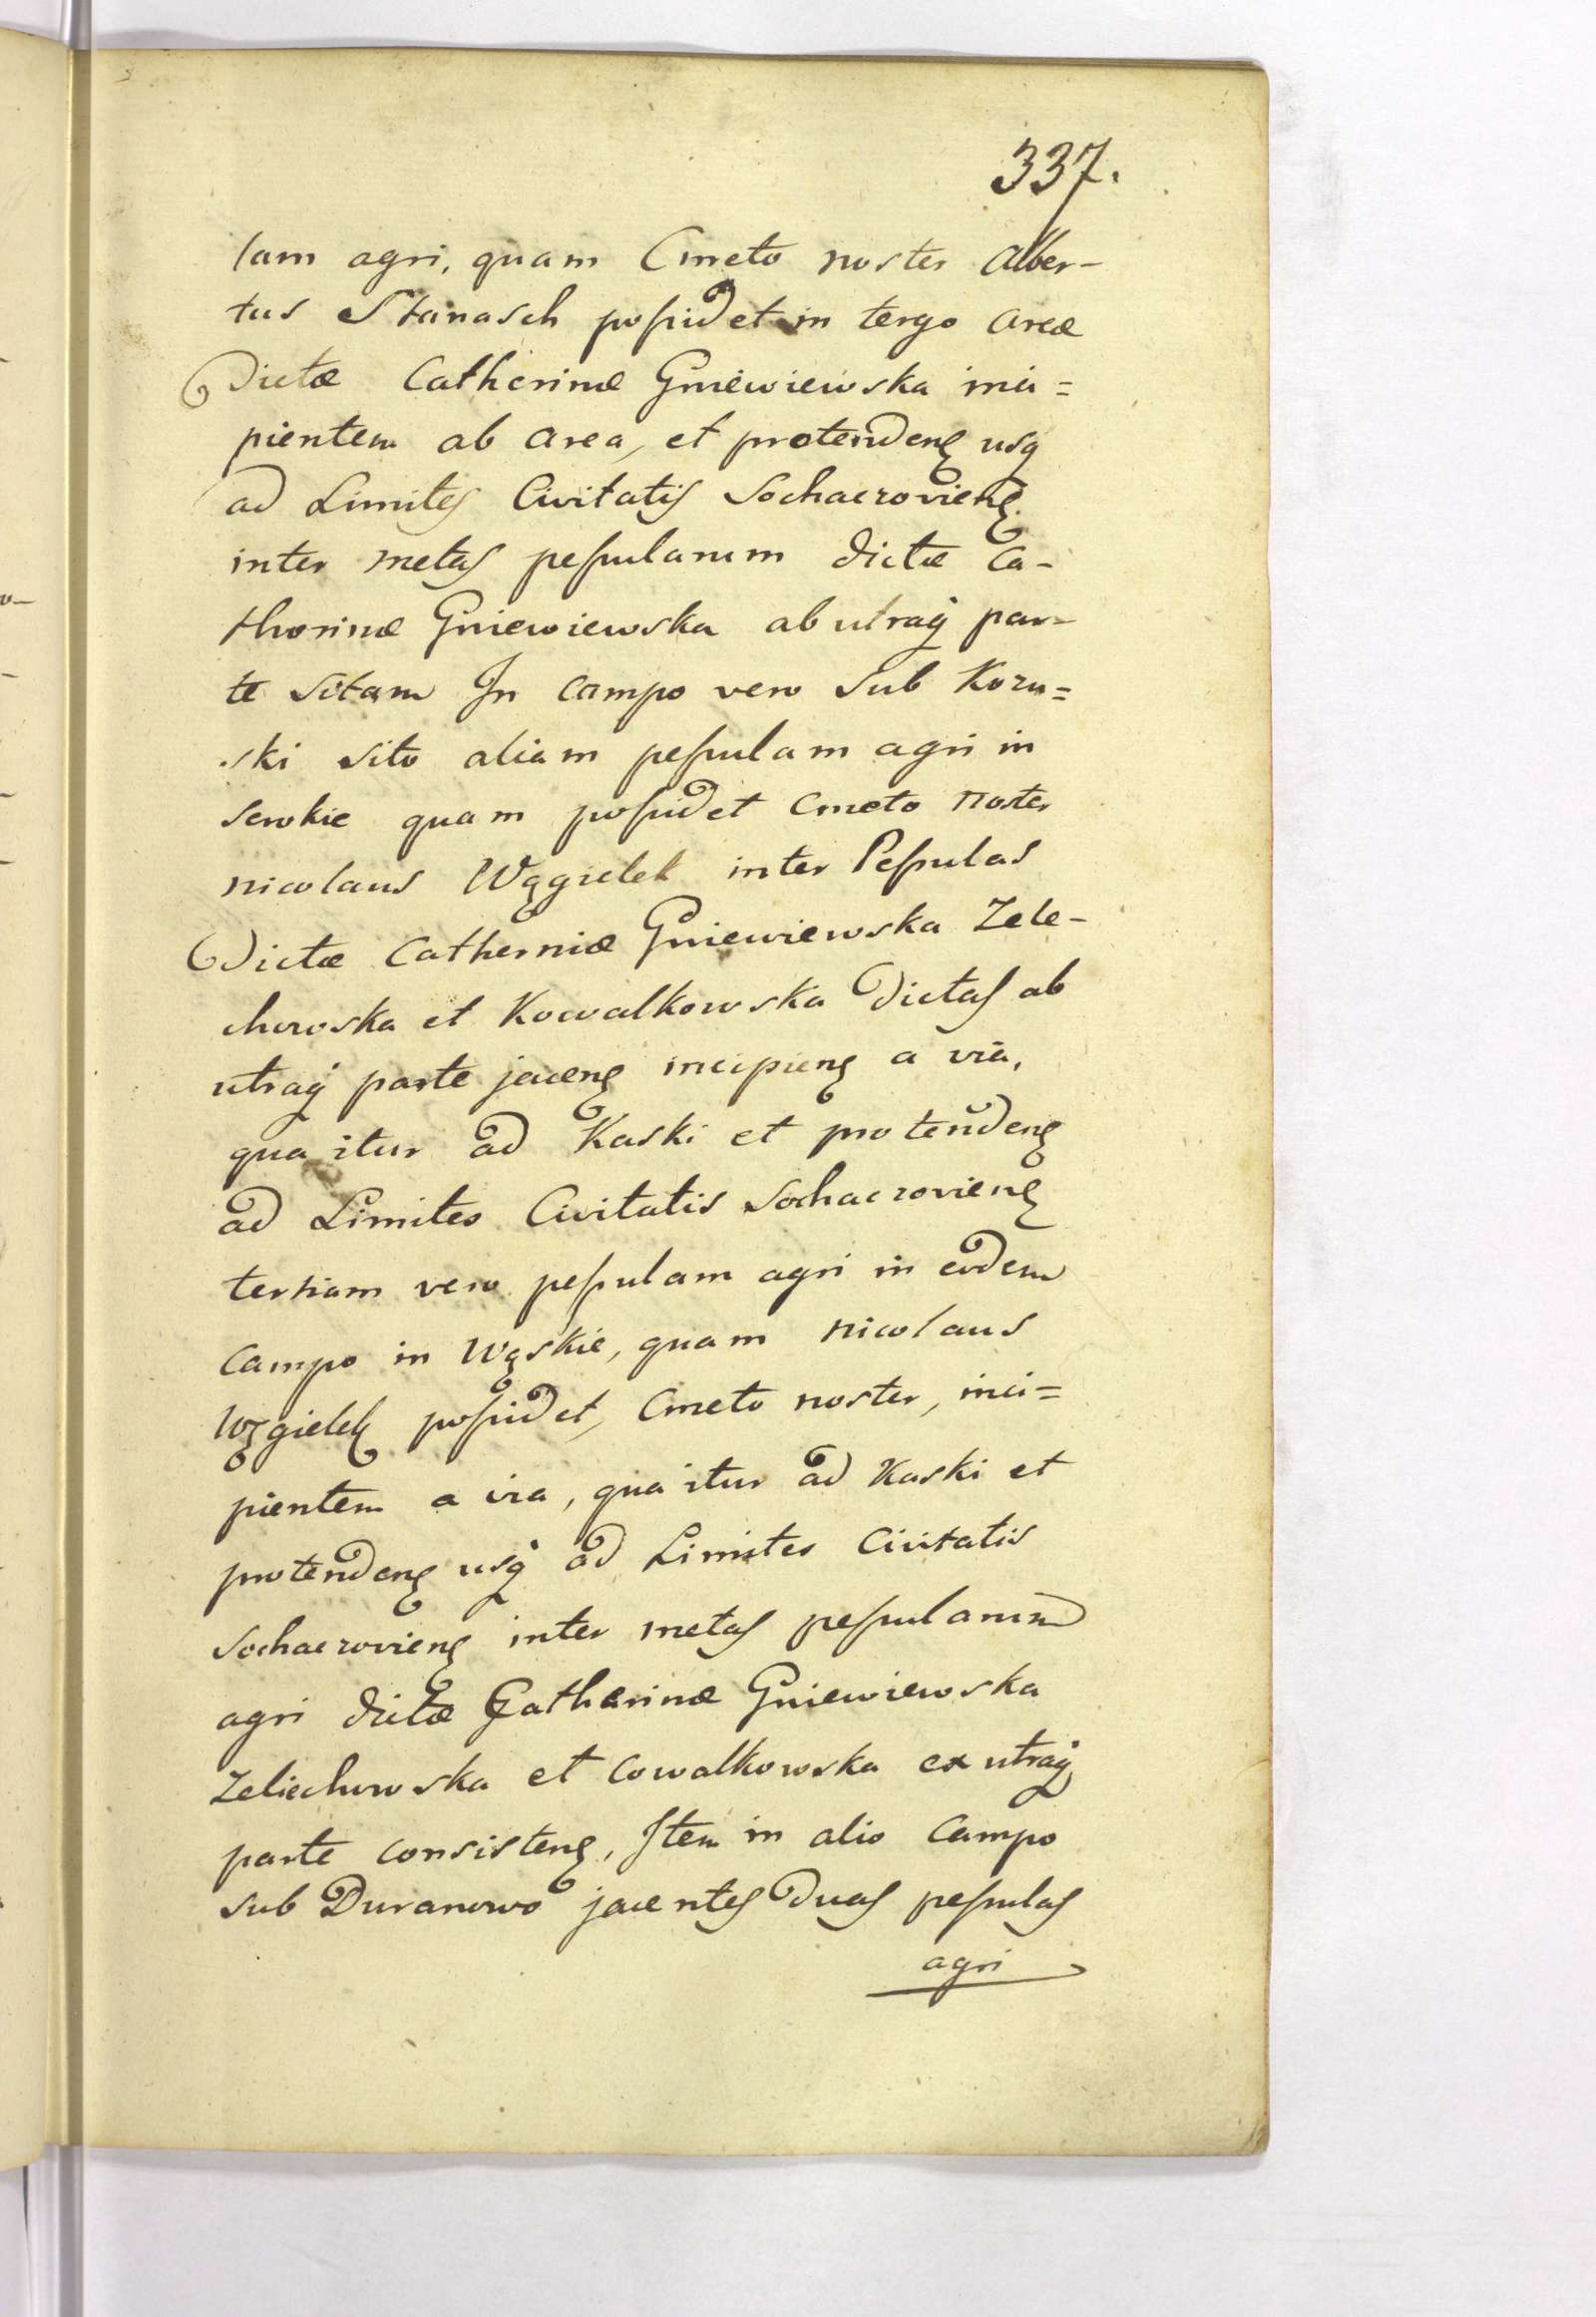 337.
lam agri, quam Cmeto noster Alber-
tus Stanasch possidet in tergo areæ
Dictæ Catherinæ Gniewiewska inci=
pientem ab area, et protendenꝭ usq
ad Limites Civitatis Sochaczovienꝭ.
inter metas pessularum dictæ Ca-
therinæ Gniewiewska ab utraq par-
te sitam In campo vero sub Kozu=
ski sito aliam pessulam agri in
serokie quam possidet Cmeto noster
nicolaus Wągielek inter Pessulas
Dictæ Catherniæ Gniewiewska Zele-
chowska et Kowalkowska Dictas ab
utraq parte jacenꝭ incipienꝭ a via,
qua itur ad Kaski et protendenꝭ
ad Limites Civitatis Sochaczovienꝭ
tertiam vero pessulam agri in eodem
Campo in Wąskie, quam nicolaus
Wągielek possidet, Cmeto noster, inci=
pientem a via, qua itur ad Kaski et
protendenꝭ usq ad Limites Civitatis
Sochaczovienꝭ inter metas pessularum
agri dictæ Catharinæ Gniewiewska
Zeliechowska et Cowalkowska ex utraq
parte consistenꝭ, Item in alio Campo
sub Duranowo jacentes Duas pessulas
agri